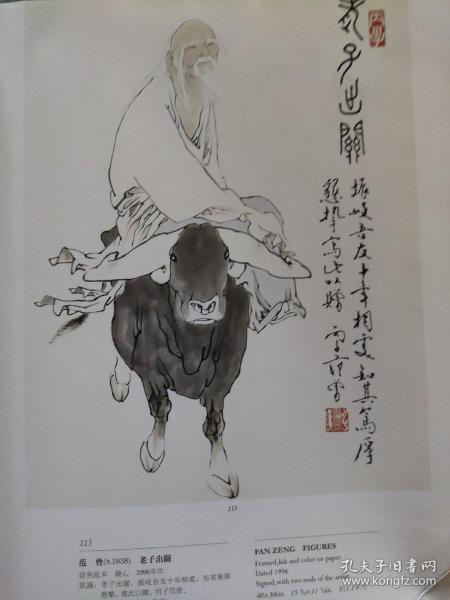 老子出關
振岐吾友十年相處知其篤厚
懇摯寫此以贈 丙子范曾
113
113
范 曾(b.1938) 老子出關
設色紙本 鏡心 1996年作
款識:老子出關。振岐吾友十年相處,知其篤厚
懇摯,寫此以贈,丙子范曾。
FAN ZENG FIGURES
Framed,ink and color on paper
Dated 1996
Signed,with two seals of the artist
40×30cm
孔夫子旧书网